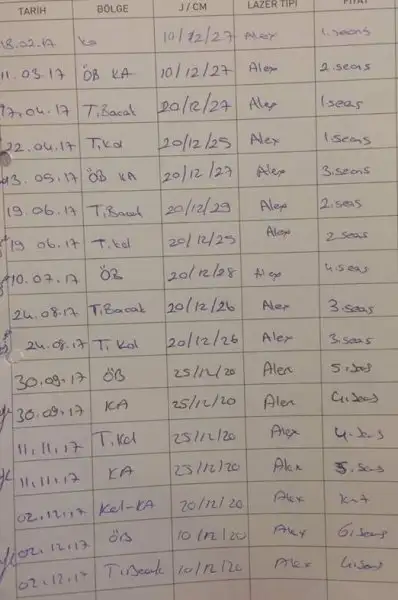 TARİH BÖLGE J / CM LAZER TİPİ FİYAT
18.02.17 KA 10/12/27 Alex 1.seans
11.03.17 ÖB KA 10/12/27 Alex 2.seans
04.17 T.Bacak 20/12/27 Alex 1seas
22.04.17 T.Kol 20/12/25 Alex 1.seans
13.05.17 ÖB KA 20/12/27 Alex 3.seans
19.06.17 T.Bacak 20/12/29 Alex 2.seas
19 06.17 T.Kol 20/12/25 Alex 2 seas
10.07.17 ÖB 20/12/28 Alex 4.seas
24.08.17 T.Bacak 20/12/26 Alex 3.seas
24.08.17 T. Kol 20/12/26 Alex 3.seas
30.09.17 ÖB 25/12/20 Alex 5.seas
30.09.17 KA 25/12/20 Alex 4.seas
11.11.17 T.Kol 25/12/20 Alex 4.
11.11.17 KA 25/12/20 Alex 5.seas
02.12.17 Kol-KA 20/12/20 Alex
02.12.17 ÖB 10/12/20 Alex 6.seas
02.12.17 T.Bacak 10/12/20 Alex 4.seas